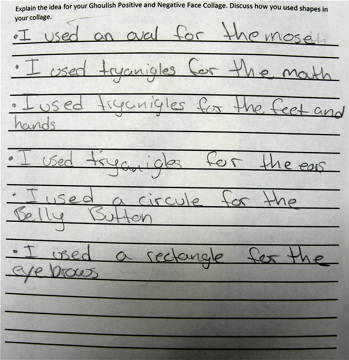 Explain the idea for your Ghoulish Positive and Negative Face Collage. Discuss how you used shapes in
your collage.
•I used an oval for the mose
•I used tryanigles for the math
•I used tryanigles for the feet and
hands
•I used tryanigles for the ears
•I used a circule for the
Belly Button
•I used a rectangle for the
eyebrows